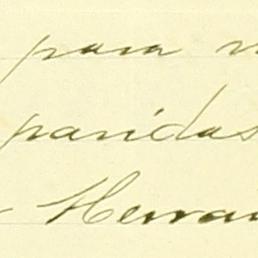 para
paridas
Herra